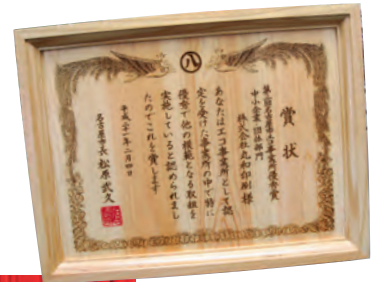 八
賞状
第一回名古屋市エコ事業所優秀賞
中小企業・団体部門
株式会社丸和印刷 様
あなたはエコ事業所として認
定を受けた事業所の中で特に
優秀で他の模範となる取組を
実施していると認められまし
たのでこれを賞します
平成二十一年二月四日
名古屋市長 松原武久